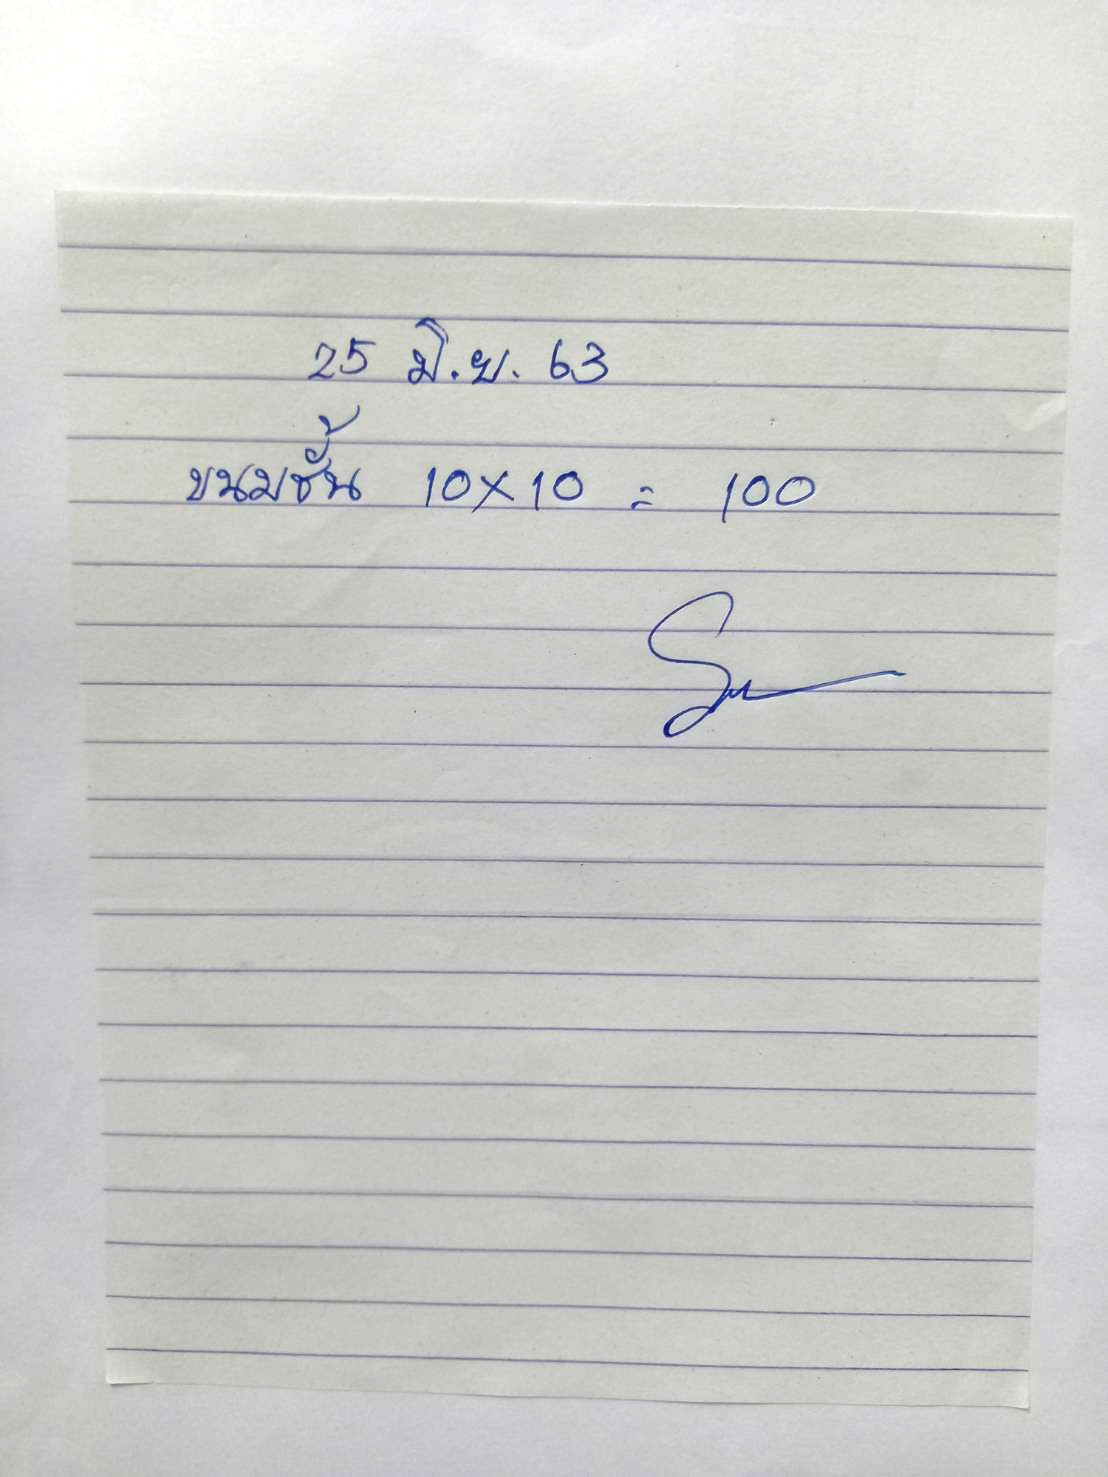 25 มิ.ย. 63
ขนมชั้น 10 x 10 = 100